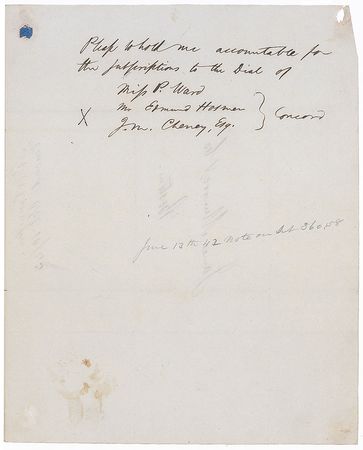 Please to hold me accountable for
the subscriptions to the Dial of
Miss P. Ward
Mr Edmund Hosmer
X J. M. Cheney, Esq. } Concord
June 13th 42 Note on